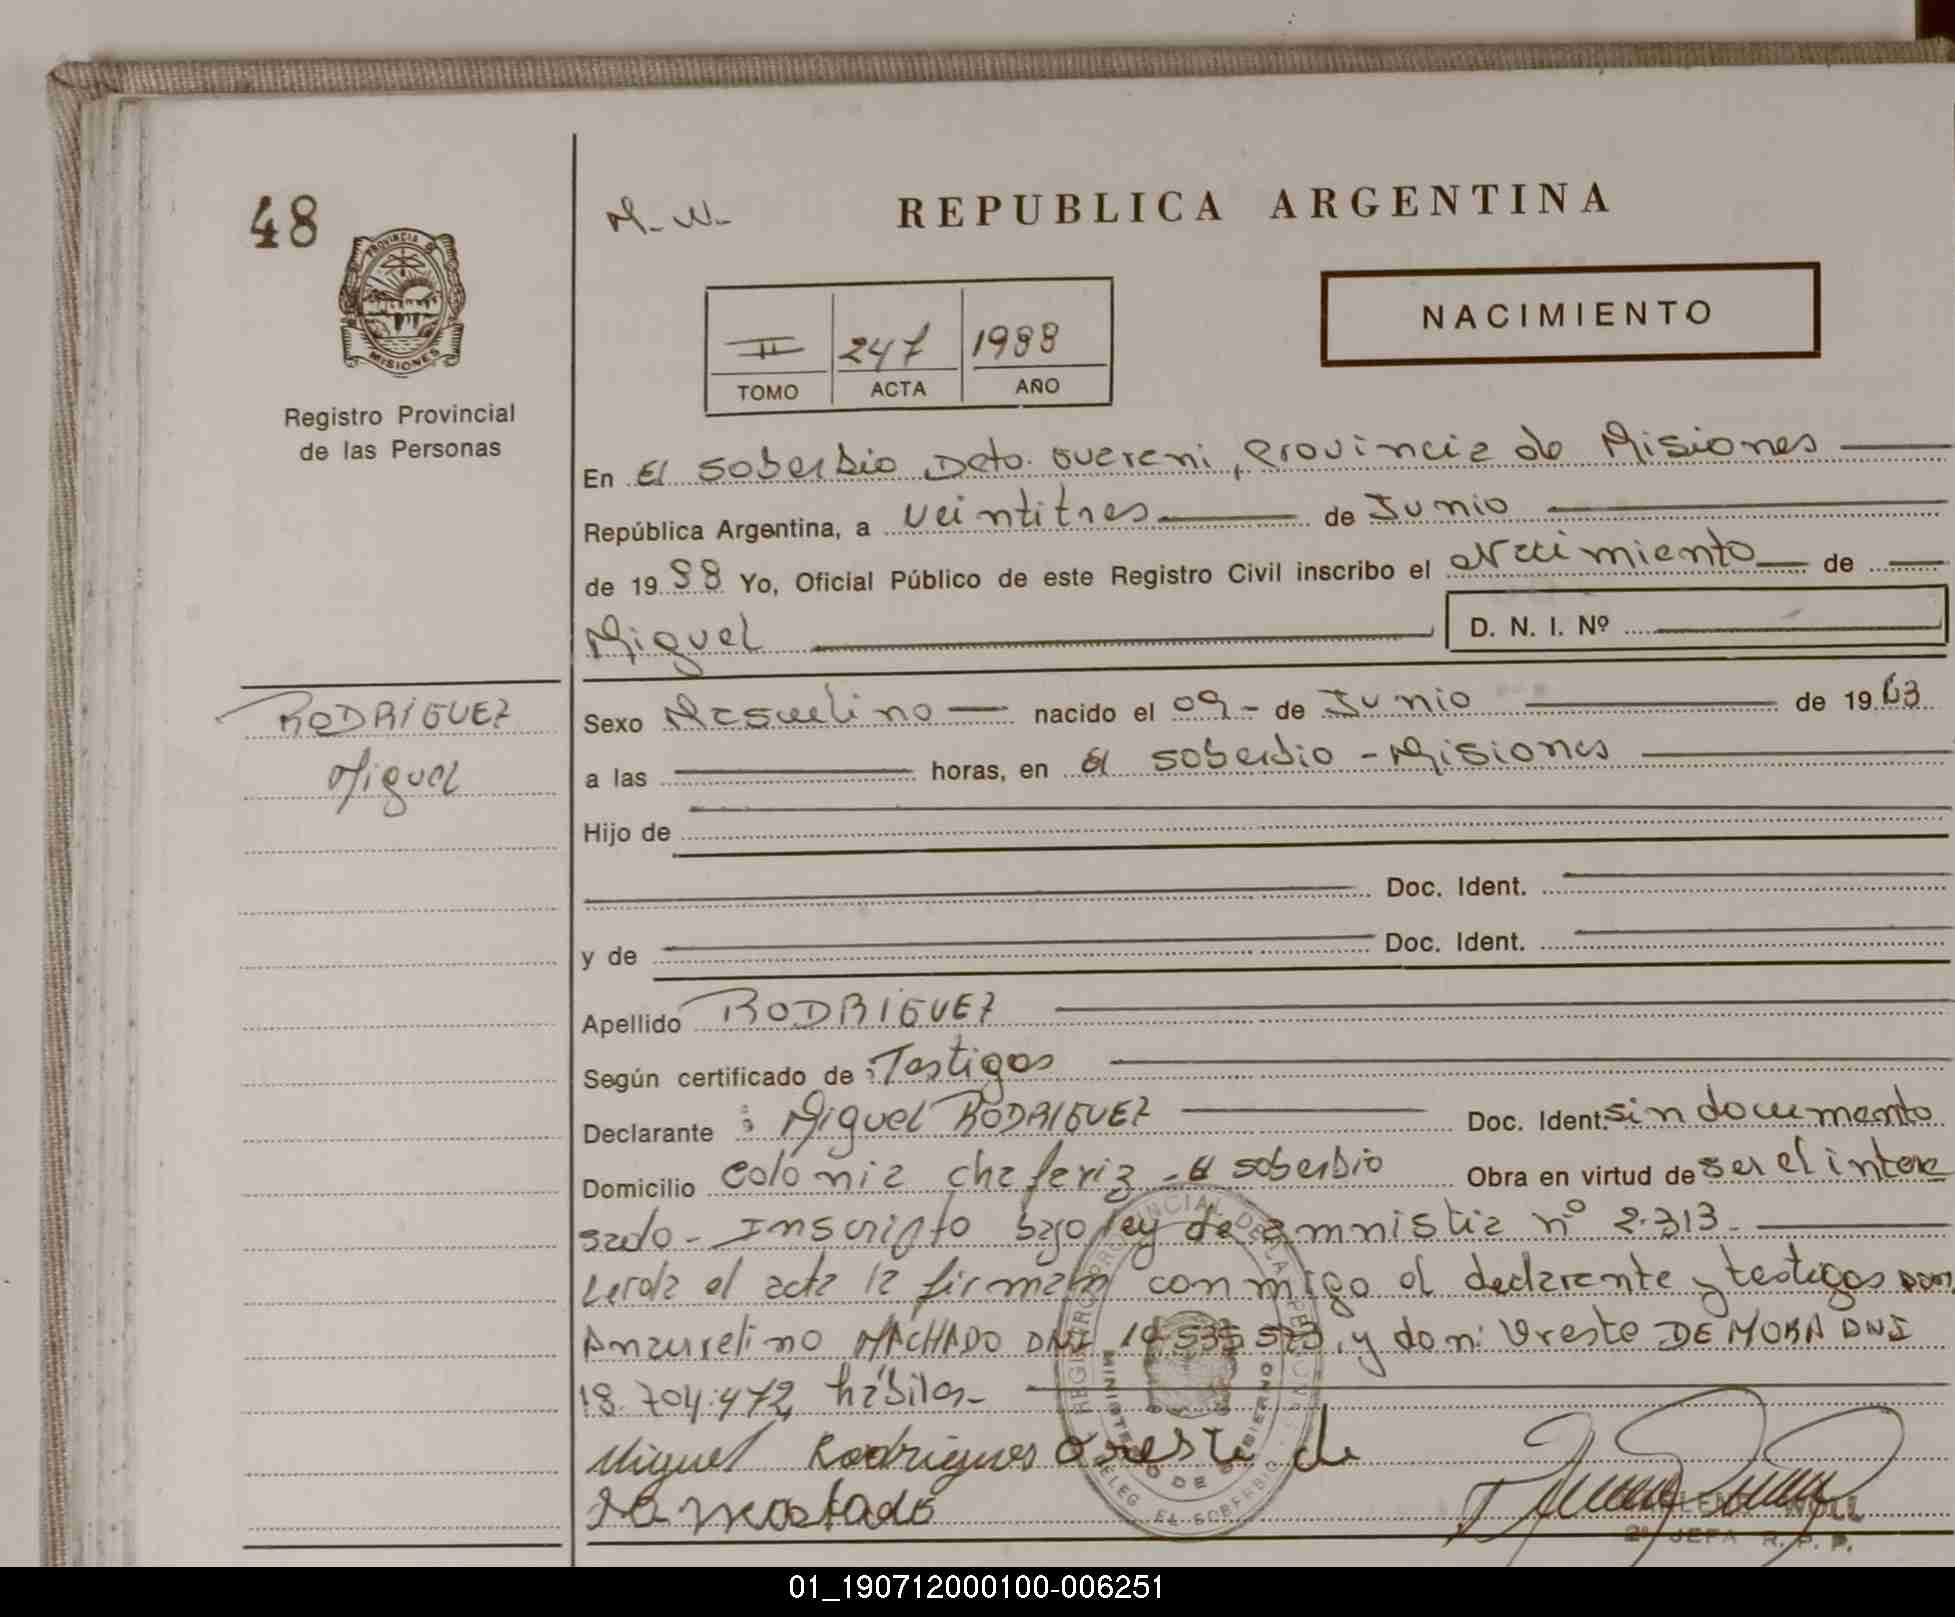 48
PROVINCIA DE
MISIONES
Registro Provincial
de las Personas
M.W.
REPUBLICA ARGENTINA
NACIMIENTO
II 247 1988
TOMO ACTA AÑO
En El Soberbio, Deto. Guarani, Provincia de Misiones
República Argentina, a veintitres de Junio
de 19 88 Yo, Oficial Público de este Registro Civil inscribo el Nacimiento de
Miguel D. N. I. Nº
RODRIGUEZ
Miguel
Sexo Masculino nacido el 09 - de Junio de 19 63
a las horas, en El Soberbio - Misiones
Hijo de
Doc. Ident.
y de Doc. Ident.
Apellido RODRIGUEZ
Según certificado de : Testigos
Declarante : Miguel RODRIGUEZ Doc. Ident. sin documento
Domicilio Colonia Chafariz - El Soberbio Obra en virtud de ser el intere
sado - Inscripto bajo ley de amnistia nº 2.313 -
Leida el acta la firman conmigo el declarante y testigos Don
MACHADO DNI y don: Oreste DE MORA DNI
18.704.472, hábiles -
Miguel Rodrigues Oreste de
REGISTRO PROVINCIAL DE LA PERSONA
MINISTERIO DE GOBIERNO
DELEG. EL SOBERBIO
NOLL
2ª JEFA R. P. P.
01_190712000100-006251